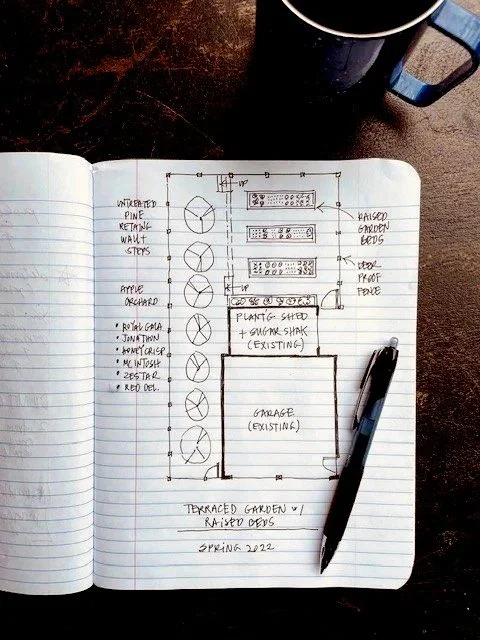 UNTREATED
PINE
RETAING
WALL &
STEPS
APPLE
ORCHARD
• ROYAL GALA
• JONATHON
• HONEYCRISP
• MCINTOSH
• ZESTAR
• RED DEL.
UP
UP
RAISED
GARDEN
BEDS
DEER
PROOF
FENCE
PLANT'G SHED
+ SUGAR SHAK
(EXISTING)
GARAGE
(EXISTING)
TERRACED GARDEN W/
RAISED BEDS
SPRING 2022